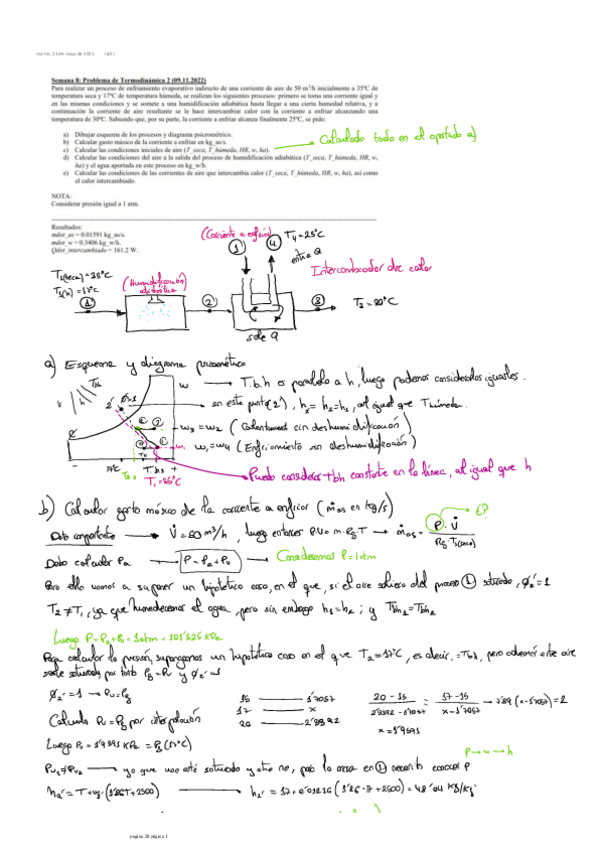 Semana 8: Problema de Termodinámica 2 (09.11.2022)
Para realizar un proceso de enfriamiento evaporativo indirecto de una corriente de aire de 50 m³/h inicialmente a 35ºC de
temperatura seca y 17ºC de temperatura húmeda, se realizan los siguientes procesos: primero se toma una corriente igual y
en las mismas condiciones y se somete a una humidificación adiabática hasta llegar a una cierta humedad relativa, y a
continuación la corriente de aire resultante se le hace intercambiar calor con la corriente a enfriar alcanzando una
temperatura de 30ºC. Sabiendo que, por su parte, la corriente a enfriar alcanza finalmente 25ºC, se pide:
a) Dibujar esquema de los procesos y diagrama psicrométrico.
b) Calcular gasto másico de la corriente a enfriar en kg_as/s.
c) Calcular las condiciones iniciales de aire (T_seca, T_húmeda, HR, w, ha).
Calculado todo en el apartado a)
d) Calcular las condiciones del aire a la salida del proceso de humidificación adiabática (T_seca, T_húmeda, HR, w,
ha) y el agua aportada en este proceso en kg_w/h.
e) Calcular las condiciones de las corrientes de aire que intercambia calor (T_seca, T_húmeda, HR, w, ha), así como
el calor intercambiado.
NOTA:
Considerar presión igual a 1 atm.
Resultados:
mdot_as = 0.01591 kg_as/s.
mdot_w = 0.3406 kg_w/h.
Qdot_intercambiado = 161.2 W.
(Corriente a enfriar)
T4=25ºC
1
4
entra Q
Intercambiador de calor
T1(seca)=35ºC
T1(h)=17ºC
(Humidificación adiabática)
1
2
3
T3=30ºC
sale Q
a) Esquema y diagrama psicrométrico
T.b.h es paralelo a h, luego podemos considerarlos iguales.
en este punto (2'), h2'=h2=h1, al igual que T húmeda.
w3=w2 (Calentamiento sin deshumidificación)
w1=w4 (Enfriamiento sin deshumidificación)
17ºC
T.b.s +
T1=35ºC
Puedo considerar tbh constante en la línea, al igual que h
b) Calcular gasto másico de la corriente a enfriar (ṁas en kg/s)
Dato importante → V̇=50 m³/h, luego entonces P·V=m·Rg·T → ṁas = P·V̇ / Rg·T1(seca)
Debo calcular Pa → P=Pa+Pv → Consideremos P=1atm
Para ello vamos a suponer un hipotético caso, en el que, si el aire saliera del proceso 1 saturado, ϕ2'=1
T2≠T1, ya que humedecemos el agua, pero sin embargo h1=h2'; y Tbh1=Tbh2
Luego P=Pa+Pv=1atm=101'325 kPa
Para calcular la presión, supongamos un hipotético caso en el que T2=17ºC, es decir, =Tbh, pero además este aire
ϕ2'=1 → Pv=Pg
15 — 1'7057
17 — x
20 — 2'3392
x=1'9591
Calcula Pv=Pg por interpolación
Luego Pv=1'9591 kPa=Pg(17ºC)
Pv1≠Pv2 → ya que uno está saturado y otro no,
P→w→h